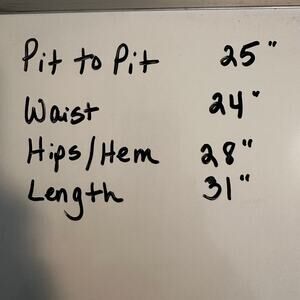 Pit to Pit 25"
Waist 24"
Hips/Hem 28"
Length 31"